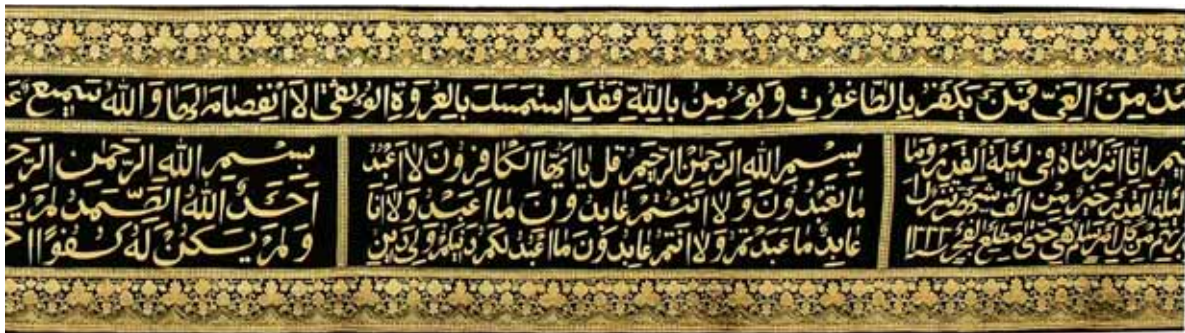 من الغي فمن يكفر بالطاغوت ويؤمن بالله فقد استمسك بالعروة الوثقى لا انفصام لها والله سميع
انا انزلناه في ليلة القدر وما
ليلة القدر خير من الف شهر تنزل
ربهم من كل امر سلام هي حتى مطلع الفجر
بِسْمِ الله الرحمن الرحيم قل يا ايها الكافرون لا اعبد
ما تعبدون ولا انتم عابدون ما اعبد ولا انا
عابد ما عبدتم ولا انتم عابدون ما اعبد لكم دينكم ولي دين
بِسْمِ الله الرحمن
احد الله الصمد لم
ولم يكن له كفوا